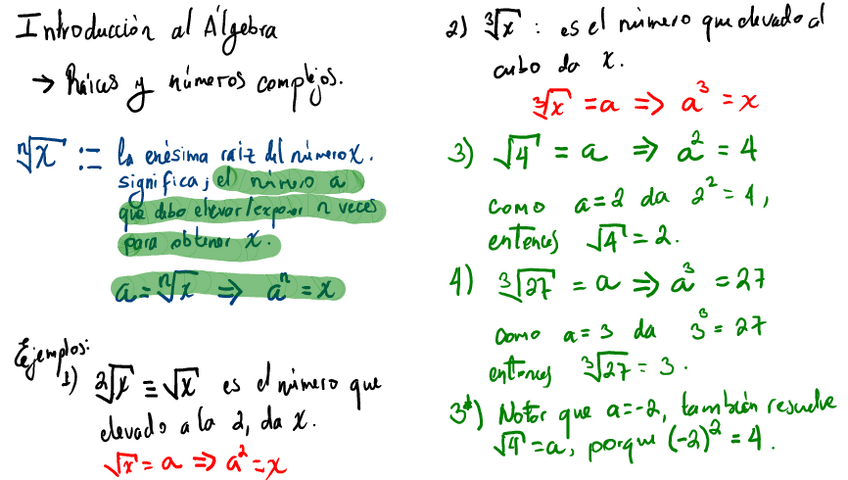 Introducción al Álgebra
→ Raíces y números complejos.
ⁿ√x := la enésima raiz del número x.
significa; el número a
que debo elevar/exponer n veces
para obtener x.
a = ⁿ√x ⇒ aⁿ = x
Ejemplos:
1) ²√x ≡ √x es el número que
elevado a la 2, da x.
√x = a ⇒ a² = x
2) ³√x : es el número que elevado al
cubo da x.
³√x = a ⇒ a³ = x
3) √4 = a ⇒ a² = 4
como a = 2 da 2² = 4,
entonces √4 = 2.
4) ³√27 = a ⇒ a³ = 27
como a = 3 da 3³ = 27
entonces ³√27 = 3.
3*) Notar que a = -2, también resuelve
√4 = a, porque (-2)² = 4.